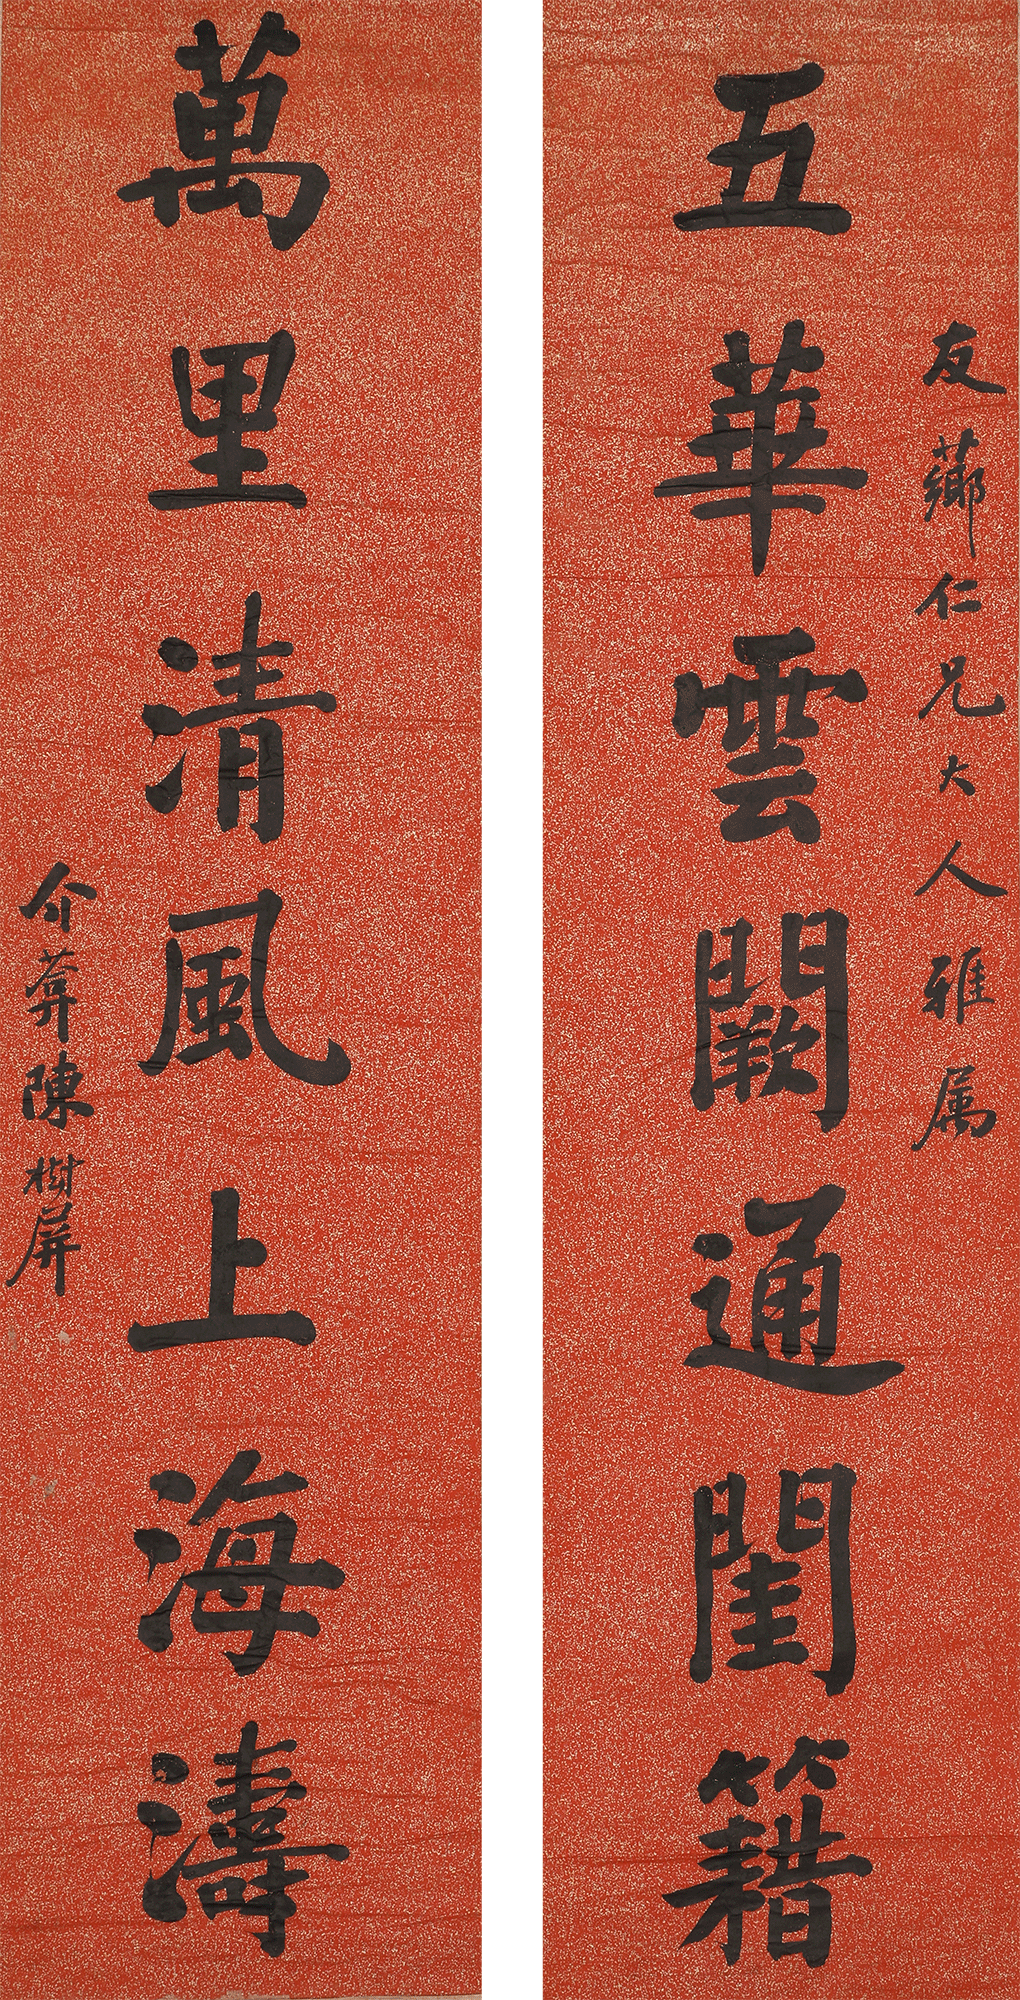 友薌仁兄大人雅属
五華雲闕通閨籍
萬里清風上海濤
介葊陳樹屏